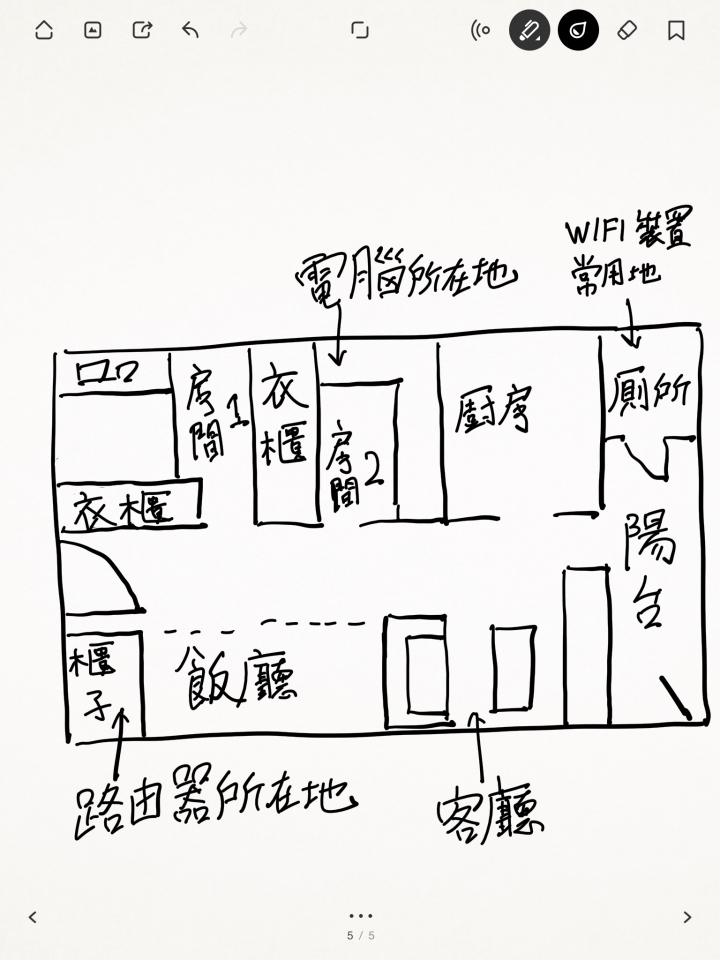 WIFI 裝置
常用地
電腦所在地
房間1
衣櫃
房間2
廚房
廁所
衣櫃
陽台
櫃子
飯廳
路由器所在地
客廳
5 / 5